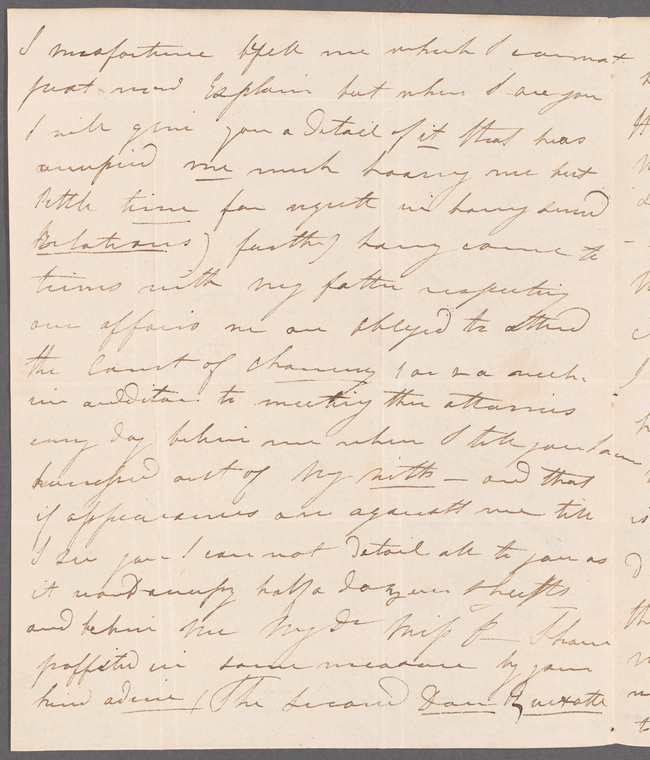 A misfortune befell me which I cannot
just now Explain but when I see you
I will give you a detail of it that has
occupied me much leaving me but
little time for
Relations) farther having come to
terms with my father respecting
our affairs we are obliged to attend
the Court of Chancery 1 or 2 a week
in addition to meeting the attornies
every day believe me when I tell you I am
out of my witts — and that
if appearances are against me till
I see you I can not detail all to you as
it would occupy half a dozzen sheets
and believe me My Dr Miss P— I have
proffited in some measure by your
kind advice (The second Don Quixotte